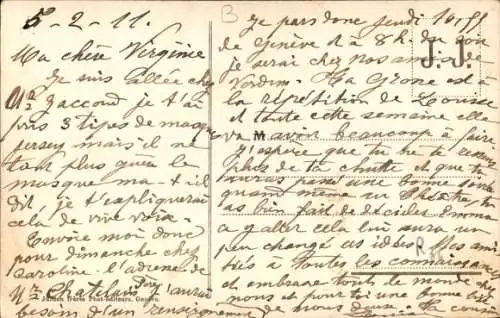 5-2-11.
Ma chère Virginie
Je suis allée chez
Mr Zaccond je t'ai
pris 3 types de masque
jersey mais il ne
tout plus guère le
masque ma-t-il
dit, je t'expliquerai
cela de vive voix.
Envoie moi donc
pour dimanche chez
Caroline l'adresse de
Mr Chatelain j'aurai
besoin d'un renseignement
Jullien frères Phot-Editeurs, Genève.
B
Je pars donc jeudi
de Genève à 8 h. du soir
je serai chez nos amis de
Verdun. La Grosse est à
la répétition de Louise
et toute cette semaine elle
va avoir beaucoup à faire
J'espère que tu ne te
plus de ta chutte et que tu
passé une bonne soirée
quand même au Théâtre, tu
as bien fait de décider Emma
a y aller cela lui aura un
peu changé les idées. Mes amitiés
à toutes les connaissances
et embrasse tout le monde chez
nous et pour toi une bonne bise
de nous deux
J.J.